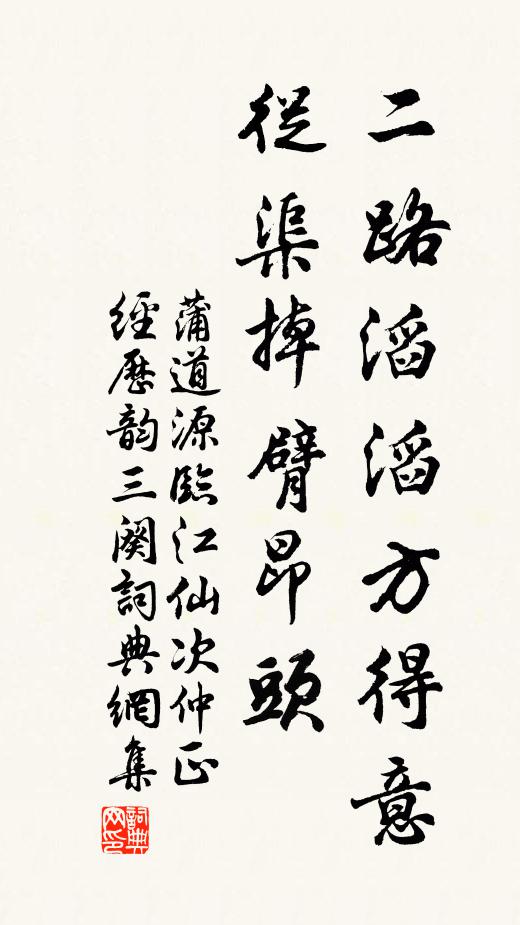 二路滔滔方得意
從渠掉臂昂頭
蒲道源臨江仙次仲正
經歷韵三闋詞典網集
詞典網印